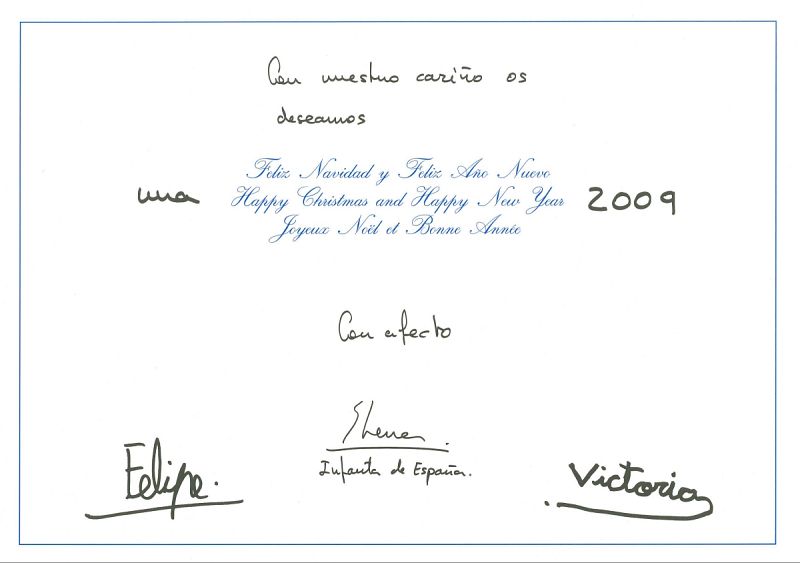 Con nuestro cariño os
deseamos
Feliz Navidad y Feliz Año Nuevo
una Happy Christmas and Happy New Year 2009
Joyeux Noël et Bonne Année
Con afecto
Elena
Infanta de España.
Felipe.
Victoria